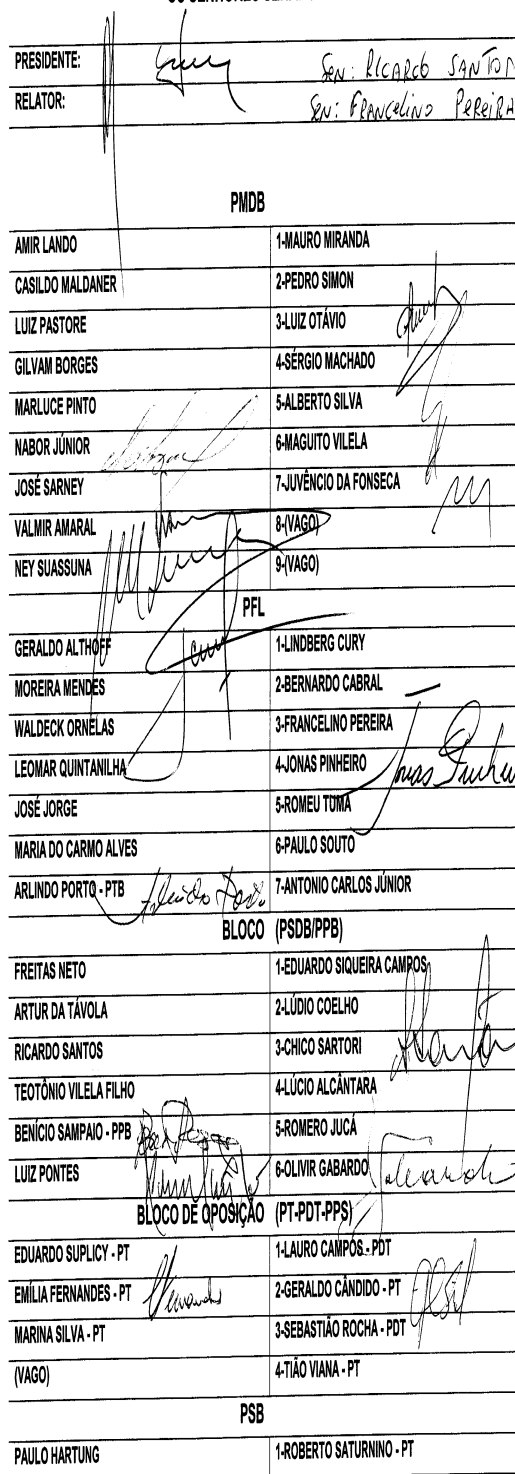 PRESIDENTE: SEN: RICARDO SANTOS
RELATOR: SEN: FRANCELINO PEREIRA
PMDB
AMIR LANDO 1-MAURO MIRANDA
CASILDO MALDANER 2-PEDRO SIMON
LUIZ PASTORE 3-LUIZ OTÁVIO
GILVAM BORGES 4-SÉRGIO MACHADO
MARLUCE PINTO 5-ALBERTO SILVA
NABOR JÚNIOR 6-MAGUITO VILELA
JOSÉ SARNEY 7-JUVÊNCIO DA FONSECA
VALMIR AMARAL 8-(VAGO)
NEY SUASSUNA 9-(VAGO)
PFL
GERALDO ALTHOFF 1-LINDBERG CURY
MOREIRA MENDES 2-BERNARDO CABRAL
WALDECK ORNELAS 3-FRANCELINO PEREIRA
LEOMAR QUINTANILHA 4-JONAS PINHEIRO Jonas Pinheiro
JOSÉ JORGE 5-ROMEU TUMA
MARIA DO CARMO ALVES 6-PAULO SOUTO
ARLINDO PORTO - PTB Arlindo Porto 7-ANTONIO CARLOS JÚNIOR
BLOCO (PSDB/PPB)
FREITAS NETO 1-EDUARDO SIQUEIRA CAMPOS
ARTUR DA TÁVOLA 2-LÚDIO COELHO
RICARDO SANTOS 3-CHICO SARTORI
TEOTÔNIO VILELA FILHO 4-LÚCIO ALCÂNTARA
BENÍCIO SAMPAIO - PPB 5-ROMERO JUCÁ
LUIZ PONTES 6-OLIVIR GABARDO
BLOCO DE OPOSIÇÃO (PT-PDT-PPS)
EDUARDO SUPLICY - PT 1-LAURO CAMPOS - PDT
EMÍLIA FERNANDES - PT 2-GERALDO CÂNDIDO - PT
MARINA SILVA - PT 3-SEBASTIÃO ROCHA - PDT
(VAGO) 4-TIÃO VIANA - PT
PSB
PAULO HARTUNG 1-ROBERTO SATURNINO - PT